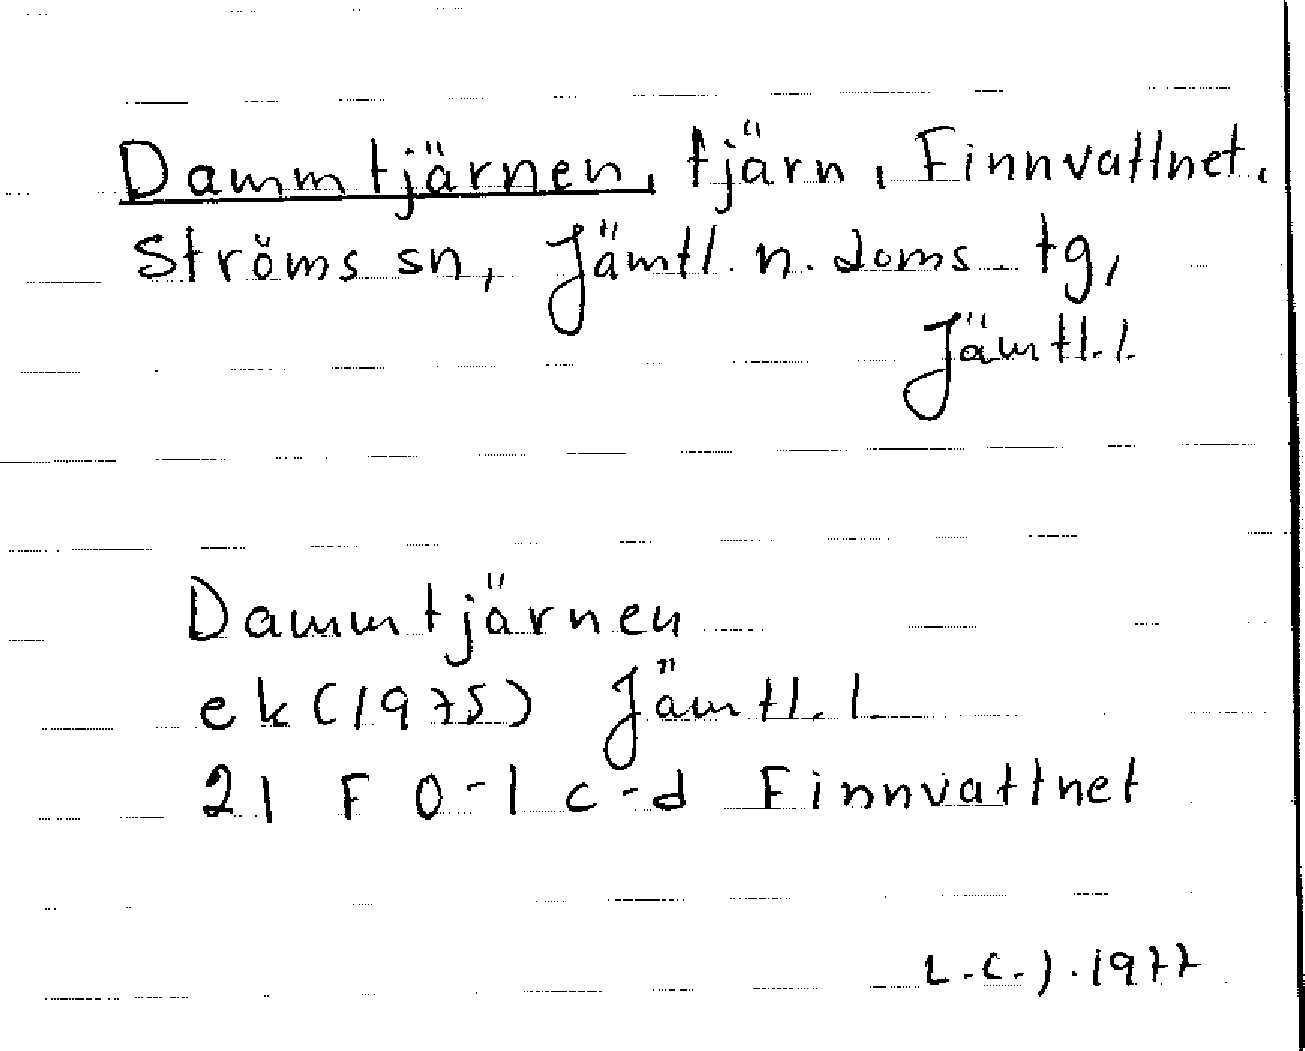 Dammtjärnen, tjärn, Finnvattnet,
Ströms sn, Jämtl. n. doms. tg,
Jämtl. l.
Dammtjärnen
ek (1975) Jämtl. l.
21 F 0-1 c-d Finnvattnet
L.C.J. 1977